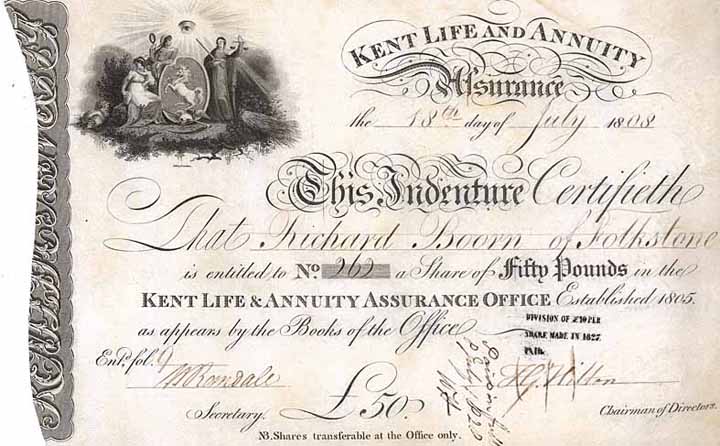 KENT LIFE AND ANNUITY
Assurance
the 18th day of July 1808
This Indenture Certifieth
That Richard Boorn of Folkstone
is entitled to No. 262 a Share of Fifty Pounds in the
KENT LIFE & ANNUITY ASSURANCE OFFICE Established 1805.
as appears by the Books of the Office
DIVISION OF £10 PER
SHARE MADE IN 1827.
PAID.
Entd. fol. 9
Secretary.
£50.
Chairman of Directors.
NB. Shares transferable at the Office only.